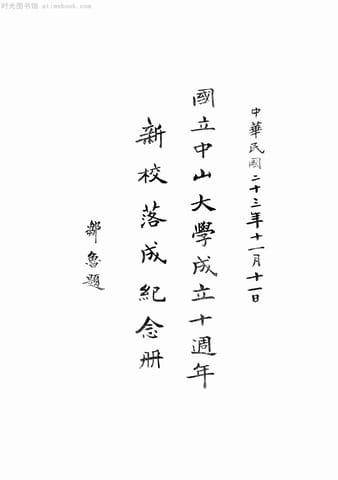 时光图书馆 atimebook.com
中華民國二十三年十一月十一日
國立中山大學成立十週年
新校落成紀念册
鄒魯題